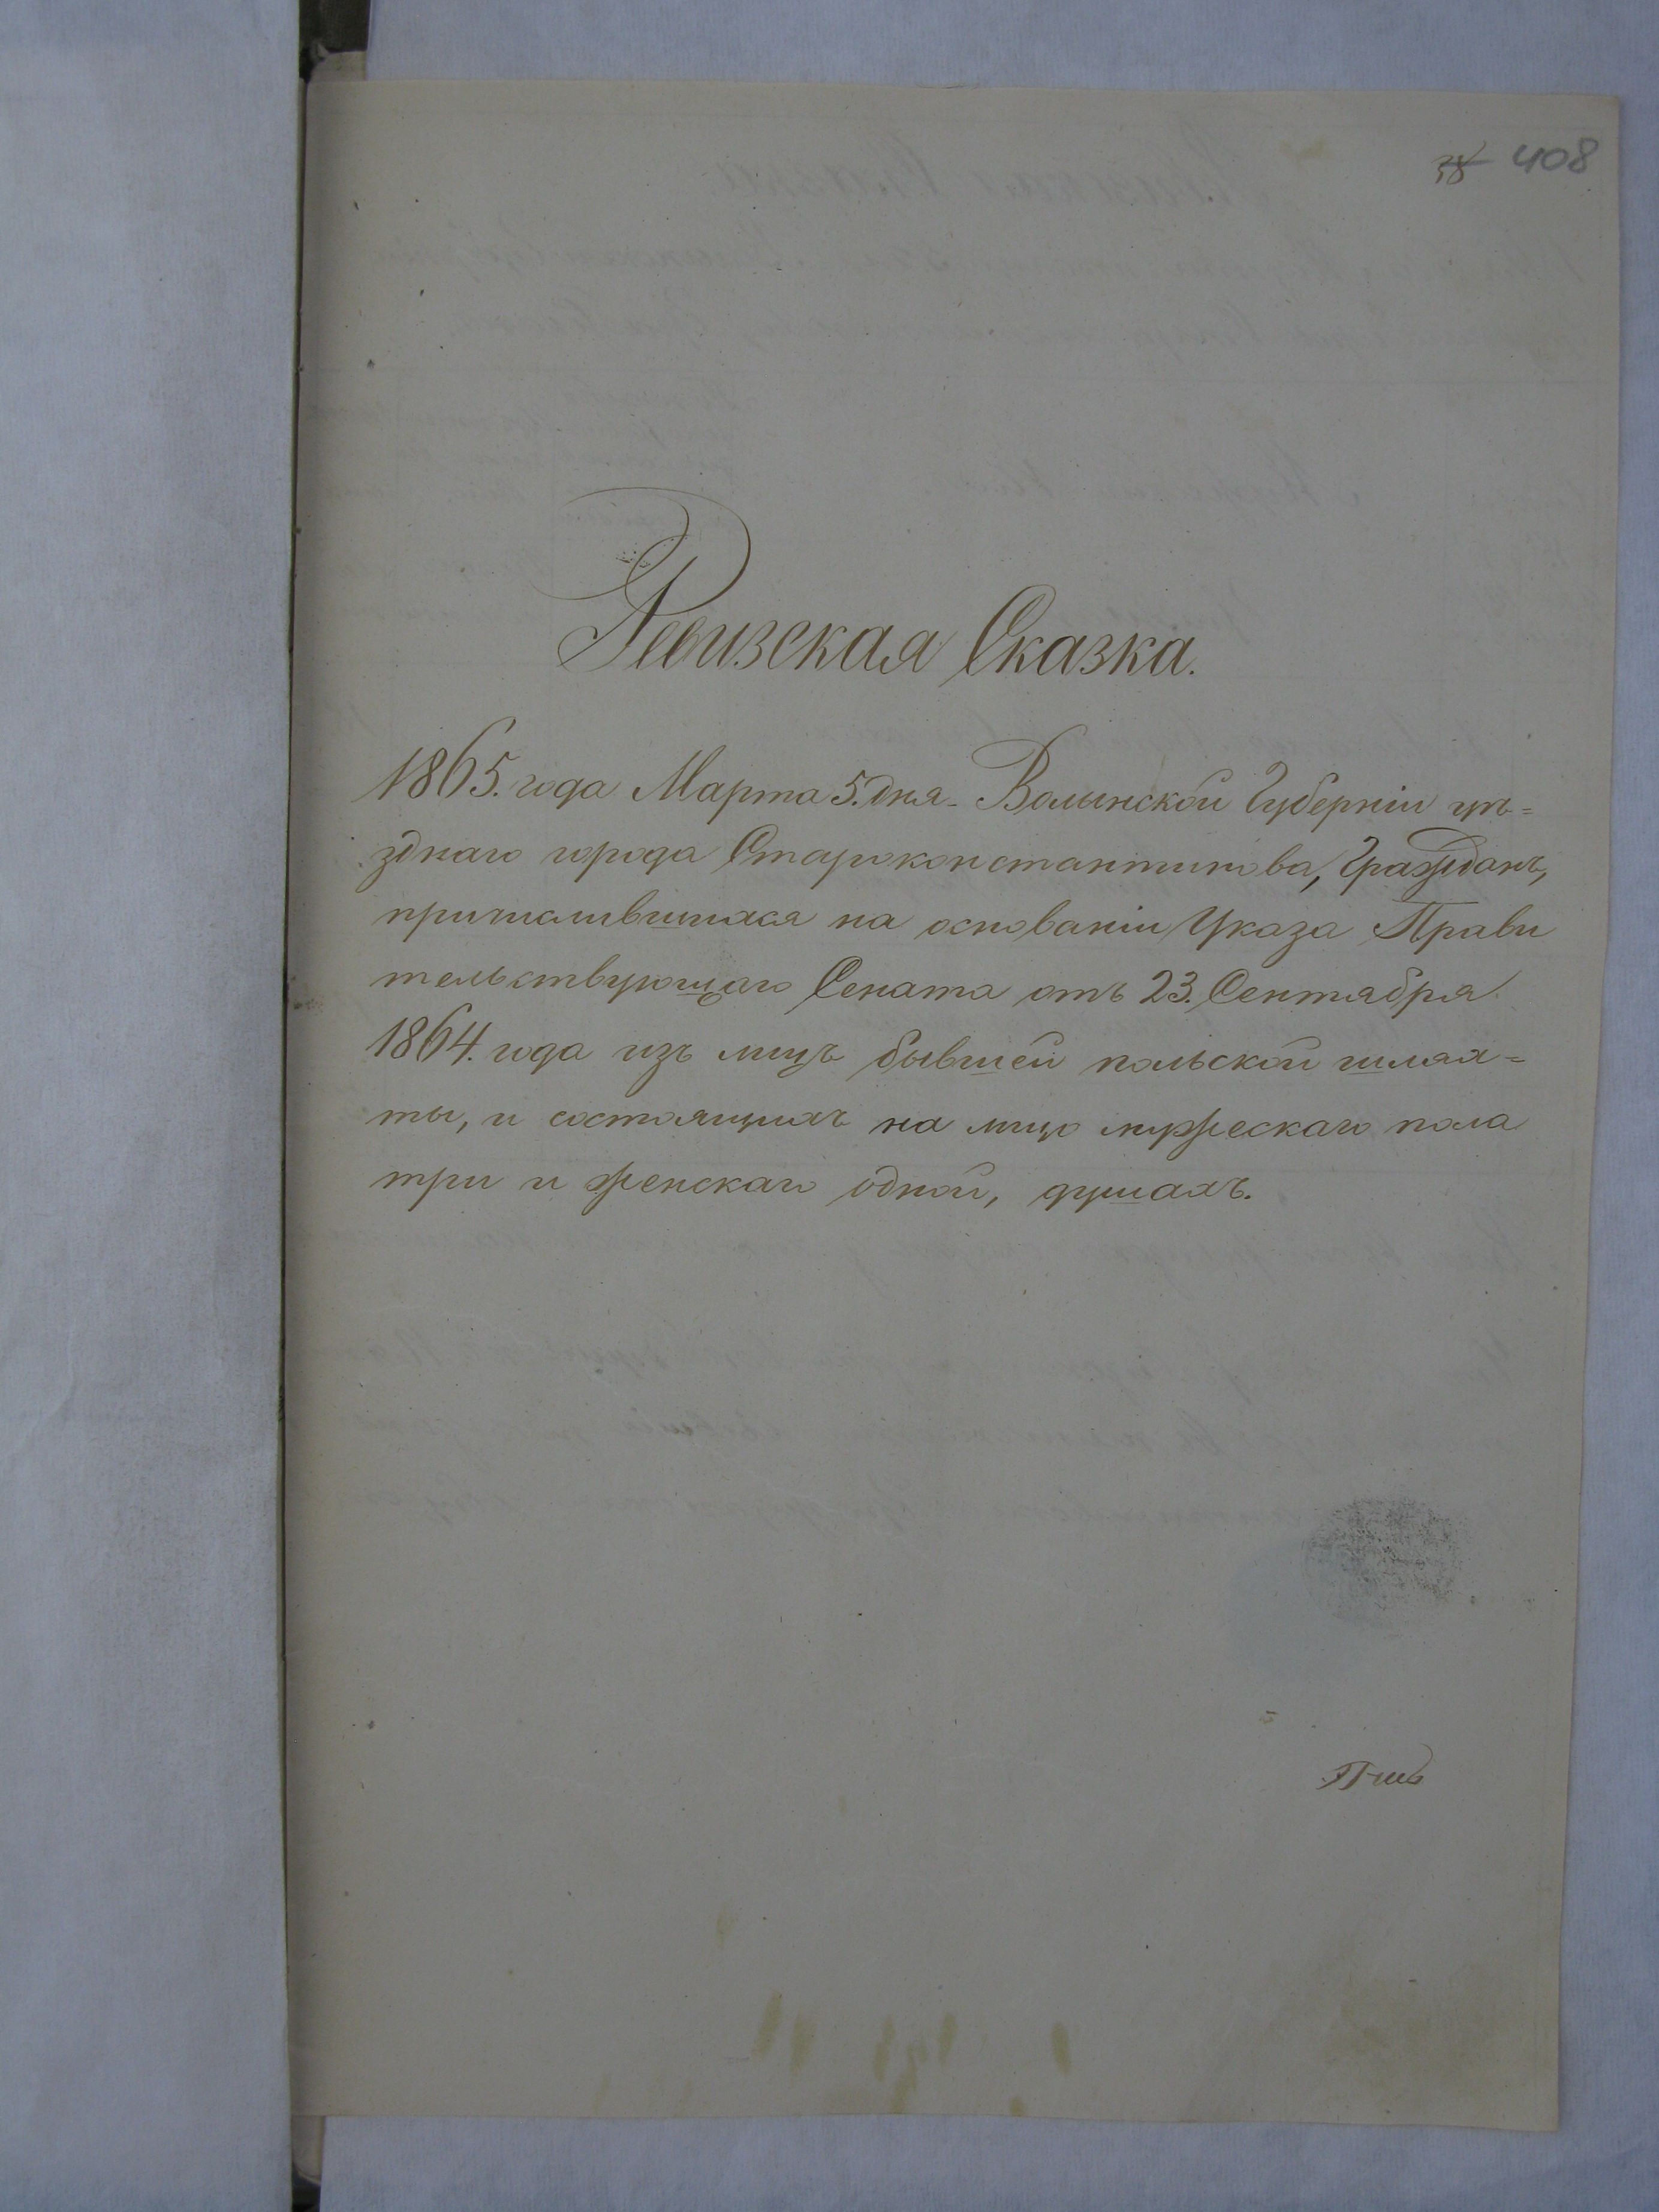 408
Ревизская Сказка.
1865. года Марта 5. дня - Волынской Губерніи уѣ=
зднаго города Староконстантинова, Гражданъ,
причислившихся на основаніи Указа Прави
тельствующаго Сената отъ 23. Сентября
1864. года изъ лицъ бывшей польской шлях=
ты, и состоящихъ на лицо мужескаго пола
три и женскаго одной, душахъ.